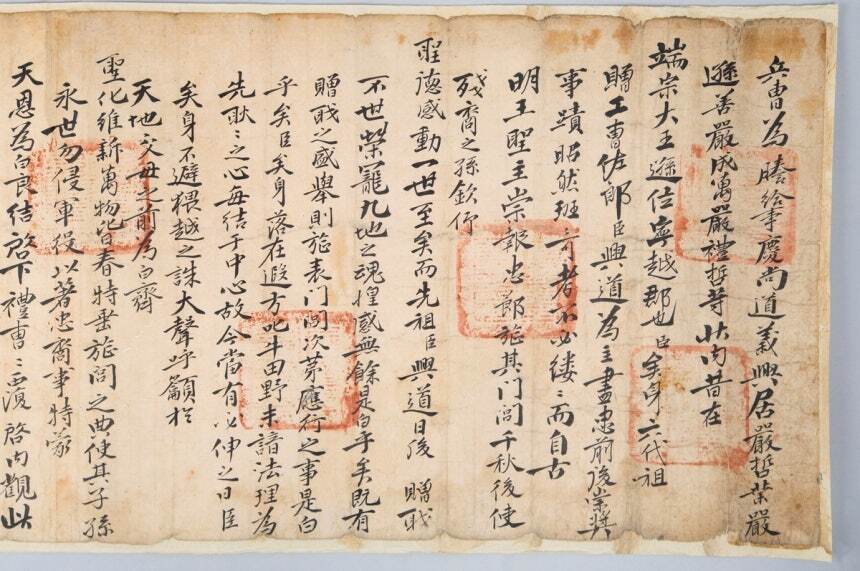 兵曹為謄給事慶尚道義興居嚴哲業嚴
遜善嚴成萬嚴禮哲等狀內昔在
端宗大王遜位寧越郡也臣矣身六代祖
贈工曹佐郎臣興道為主盡忠前後崇獎
事蹟昭然班〻可考不必縷〻而自古
明王聖主崇報忠節旌其門閭千秋後使
殘裔之孫欽仰
聖德感動一世至矣而先祖臣興道日後 贈職
不世榮寵九地之魂惶感無餘是白乎矣既有
贈職之盛舉則旌表門閭次第應行之事是白
乎矣臣矣身落在遐方叱牛田野未諳法理為
先耿〻之心每結于中心故今當有必伸之日臣
矣身不避猥越之誅大聲呼籲於
天地父母之前為白齊
聖化維新萬物皆春特垂旌閭之典使其子孫
永世勿侵軍役以著忠裔事特蒙
天恩為白良結啓下禮曹〻覆啓內觀此